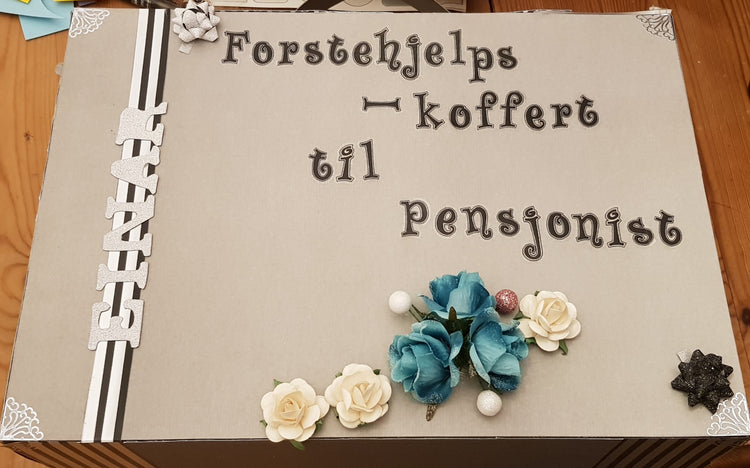 Forstehjelps
-koffert
til
pensjonist
EINAR